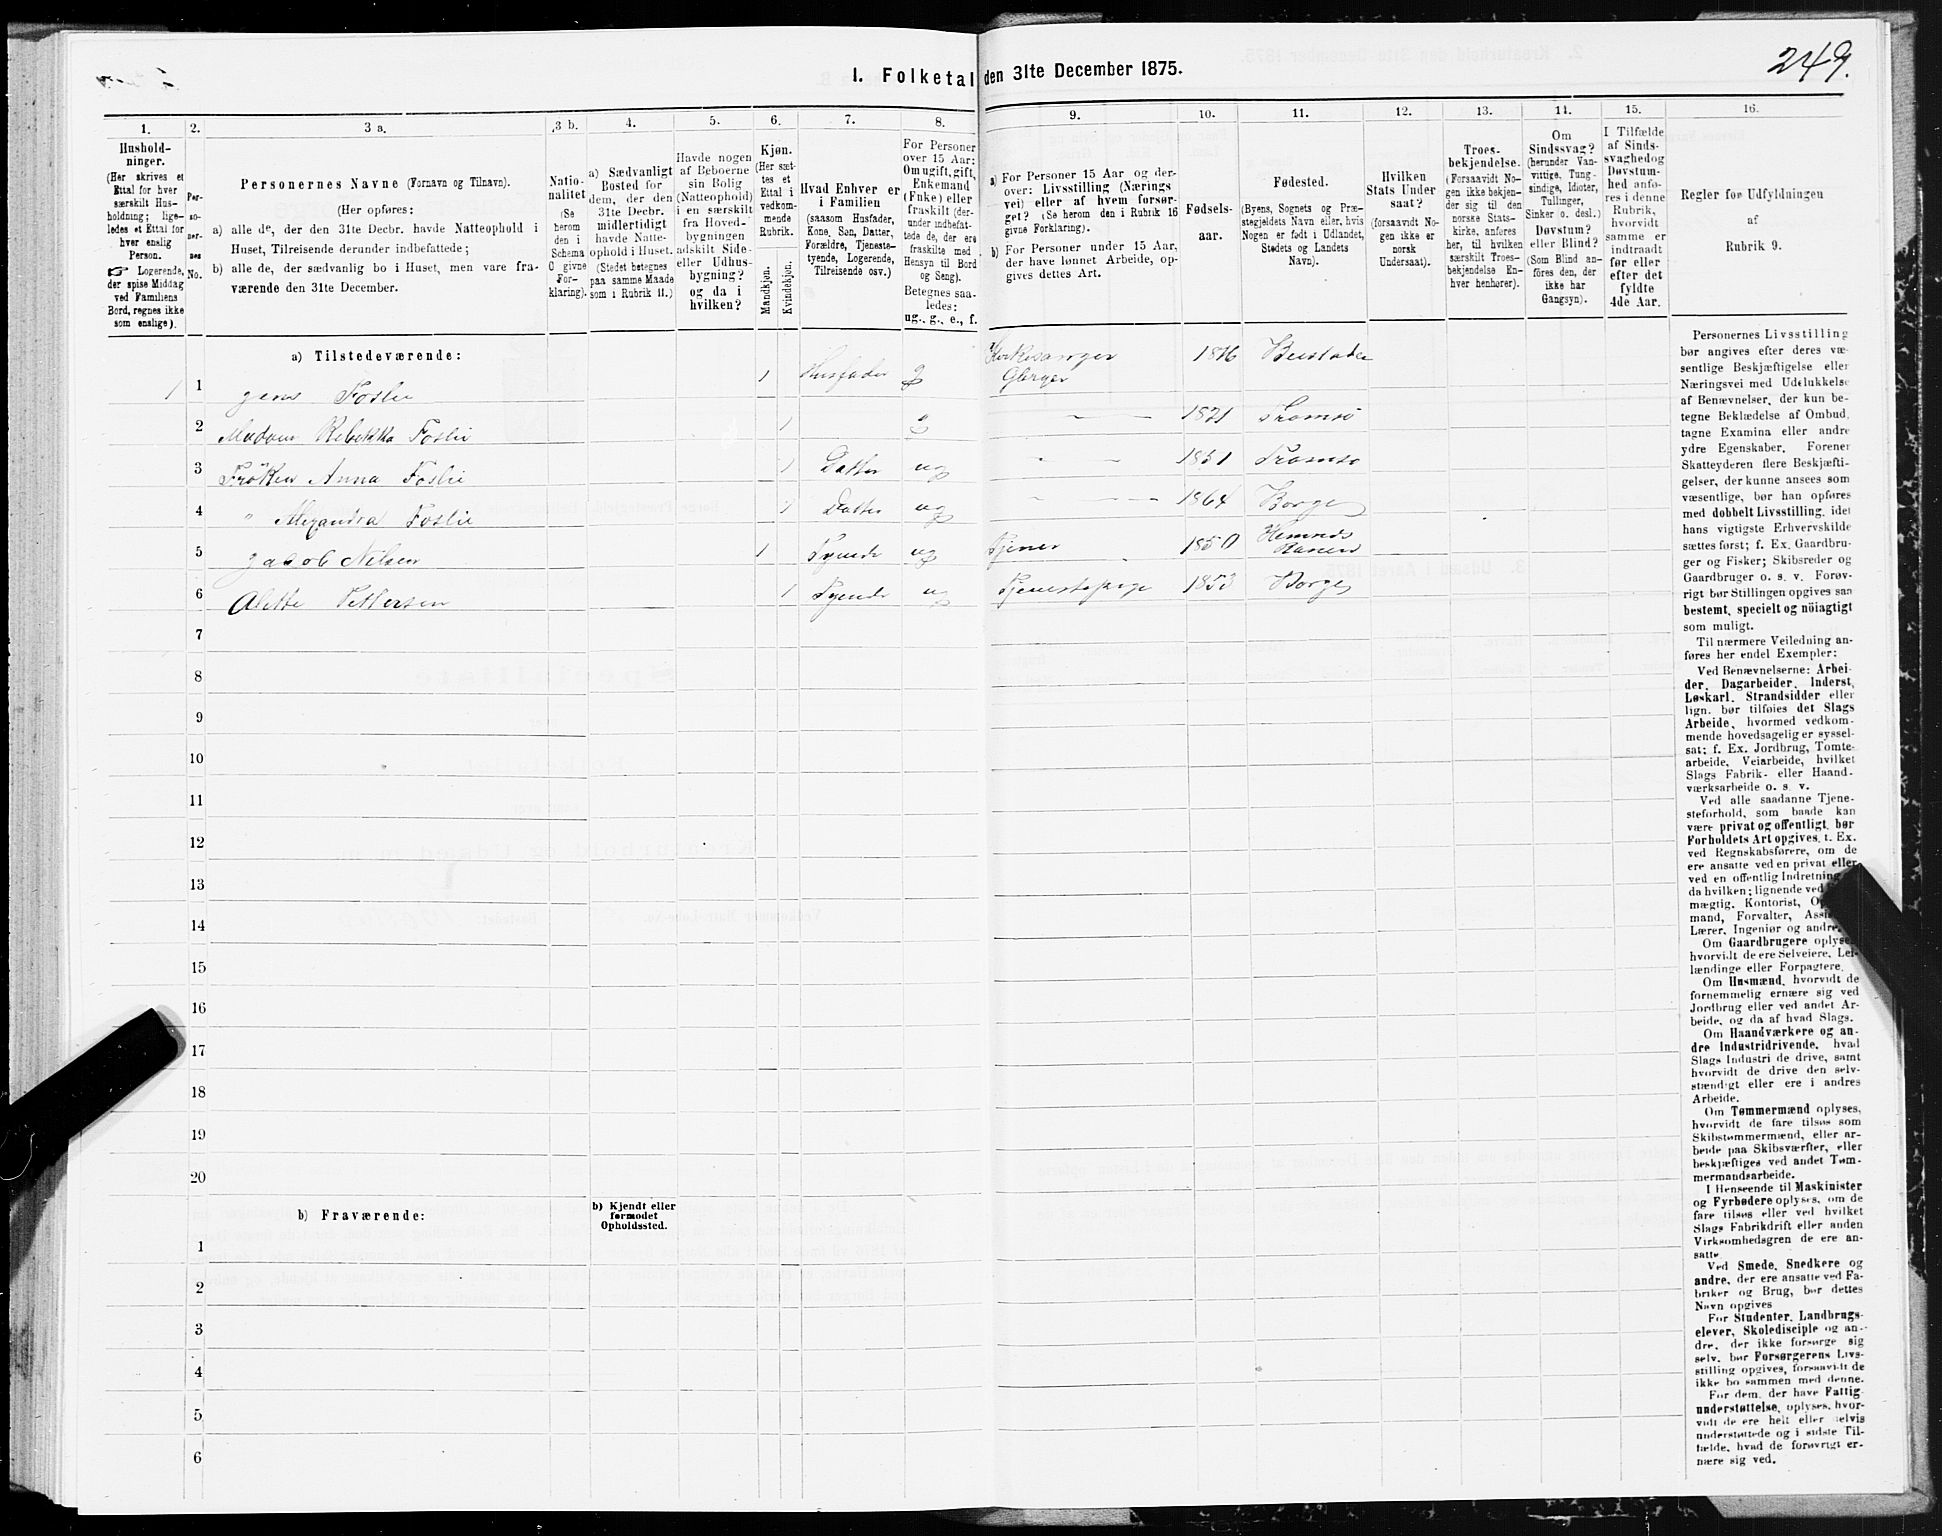 249.
1. Folketal den 31te December 1875.
1.
Hushold-
ninger.
(Her skrives et
Ettal for hver
særskilt Hus-
holdning; lige-
ledes et Ettal for
hver enslig
Person.
☞ Logerende,
der spise Middag
ved Familiens
Bord, regnes ikke
som enslige).
2.
Per-
so-
ner-
nes
No.
3 a.
Personernes Navne (Fornavn og Tilnavn).
(Her opføres:
a) alle de, der den 31te Decbr. havde Natteophold i
Huset, Tilreisende derunder indbefattede;
b) alle de, der sædvanlig bo i Huset, men vare fra-
værende den 31te December.
3 b.
Natio-
nalitet
(Se
herom
den i
Schema
C givne
For-
klaring).
4.
a) Sædvanligt
Bosted for
dem, der den
31te Decbr.
midlertidigt
havde Natte-
ophold i Huset.
(Stedet betegnes
paa samme Maade
som i Rubrik 11.)
5.
Havde nogen
af Beboerne
sin Bolig
(Natteophold)
i en særskilt
fra Hoved-
bygningen
adskilt Side-
eller Udhus-
bygning?
og da i
hvilken?
6.
Kjøn.
(Her sæt-
tes et
Ettal i
vedkom-
mende
Rubrik.
Mandkjøn.
Kvindekjøn.
7.
Hvad Enhver er
i Familien
(saasom Husfader,
Kone, Søn, Datter,
Forældre, Tjeneste-
tyende, Logerende,
Tilreisende osv.)
8.
For Personer
over 15 Aar:
Om ugift, gift,
Enkemand
(Enke) eller
fraskilt (der-
under indbefat-
tede de, der ere
fraskilte med
Hensyn til Bord
og Seng).
Betegnes saa-
ledes:
ug., g., e., f.
9.
a) For Personer 15 Aar og der-
over: Livsstilling (Nærings-
vei) eller af hvem forsør-
get? (Se herom den i Rubrik 16
givne Forklaring).
b) For Personer under 15 Aar,
der have lønnet Arbeide, op-
gives dettes Art.
10.
Fødsels-
aar.
11.
Fødested.
(Byens, Sognets og Præ-
stegjeldets Navn eller, hvis
Nogen er født i Udlandet,
Stedets og Landets
Navn).
12.
Hvilken
Stats Under-
saat?
(forsaavidt No-
gen ikke er
norsk
Undersaat).
13.
Troes-
bekjendelse.
(Forsaavidt No-
gen ikke bekjen-
der sig til den
norske Stats-
kirke, anføres
her, til hvilken
særskilt Troes-
bekjendelse En-
hver henhører).
14.
Om
Sindssvag?
(herunder Van-
vittige, Tung-
sindige, Idioter,
Tullinger,
Sinker o. desl.)
Døvstum?
eller Blind?
(Som Blind an-
føres den, der
ikke har
Gangsyn).
15.
I Tilfælde
af Sinds-
svaghed og
Døvstum-
hed anfø-
res i denne
Rubrik,
hvorvidt
samme er
indtraadt
før eller
efter det
fyldte
4de Aar.
16.
Regler for Udfyldningen
af
Rubrik 9.
a) Tilstedeværende:
1 1 Jens Foslie 1 Husfader g Kirkesanger 1816
2 Madam Rebekka Foslie 1 g 1821 Tromsø
3 Frøken Anna Foslie 1 Datter ug 1851 Tromsø
4 " Alexandra Foslie 1 Datter ug 1864 Borge
5 Jacob Nilsen 1 Tyende ug Tjener 1850 Hemnes
Ranen
6 Alette Pettersen 1 Tyende ug Tjenestepige 1853 Borge
7
8
9
10
11
12
13
14
15
16
17
18
19
20
b) Fraværende:
b) Kjendt eller
formodet
Opholdssted.
1
2
3
4
5
6
Personernes Livsstilling
bør angives efter deres væ-
sentlige Beskjæftigelse eller
Næringsvei med Udelukkelse
af Benævnelser, der kun be-
tegne Beklædelse af Ombud,
tagne Examina eller andre
ydre Egenskaber. Forener
Skatteyderen flere Beskjæfti-
gelser, der kunne ansees som
væsentlige, bør han opføres
med dobbelt Livsstilling, idet
hans vigtigste Erhvervskilde
sættes først; f. Ex. Gaardbru-
ger og Fisker; Skibsreder og
Gaardbruger o. s. v. Forøv-
rigt bør Stillingen opgives saa
bestemt, specielt og nöiagtigt
som muligt.
Til nærmere Veiledning an-
føres her endel Exempler:
Ved Benævnelserne: Arbei-
der, Dagarbeider, Inderst,
Løskarl, Strandsidder eller
lign. bør tilføies det Slags
Arbeide, hvormed vedkom-
mende hovedsagelig er syssel-
sat; f. Ex. Jordbrug, Tomte-
arbeide, Veiarbeide, hvilket
Slags Fabrik- eller Haand-
værksarbeide o. s. v.
Ved alle saadanne Tjene-
steforhold, som baade kan
være privat og offentligt, bør
Forholdets Art opgives, f. Ex.
ved Regnskabsførere, om de
ere ansatte ved en privat eller
ved en offentlig Indretning
da hvilken; lignende ved
mægtig, Kontorist,
mand, Forvalter,
Lærer, Ingeniør og andre.
Om Gaardbrugere oplyses,
hvorvidt de ere Selveiere, Lei-
lændinge eller Forpagtere.
Om Husmænd, hvorvidt de
fornemmelig ernære sig ved
Jordbrug eller ved andet Ar-
beide, og da af hvad Slags.
Om Haandværkere og an-
dre Industridrivende, hvad
Slags Industri de drive, samt
hvorvidt de drive den selv-
stændigt eller ere i andres
Arbeide.
Om Tømmermænd oplyses,
hvorvidt de fare tilsøs som
Skibstømmermænd, eller ar-
beide paa Skibsværfter, eller
beskjæftiges ved andet Tøm-
mermandsarbeide.
I Henseende til Maskinister
og Fyrbødere oplyses, om de
fare tilsøs eller ved hvilket
Slags Fabrikdrift eller anden
Virksomhedsgren de ere an-
satte
Ved Smede, Snedkere og
andre, der ere ansatte ved Fa-
briker og Brug, bør dettes
Navn opgives
For Studenter, Landbrugs-
elever, Skoledisciple og an-
dre, der ikke forsørge sig
selv, bør Forsørgerens Livs-
stilling opgives, forsaavidt de
ikke bo sammen med denne.
For dem, der have Fattig-
understøttelse, oplyses, hvor-
vidt de ere helt eller delvis
understøttede og i sidste Til-
fælde, hvad de forøvrigt er-
nære sig ved.